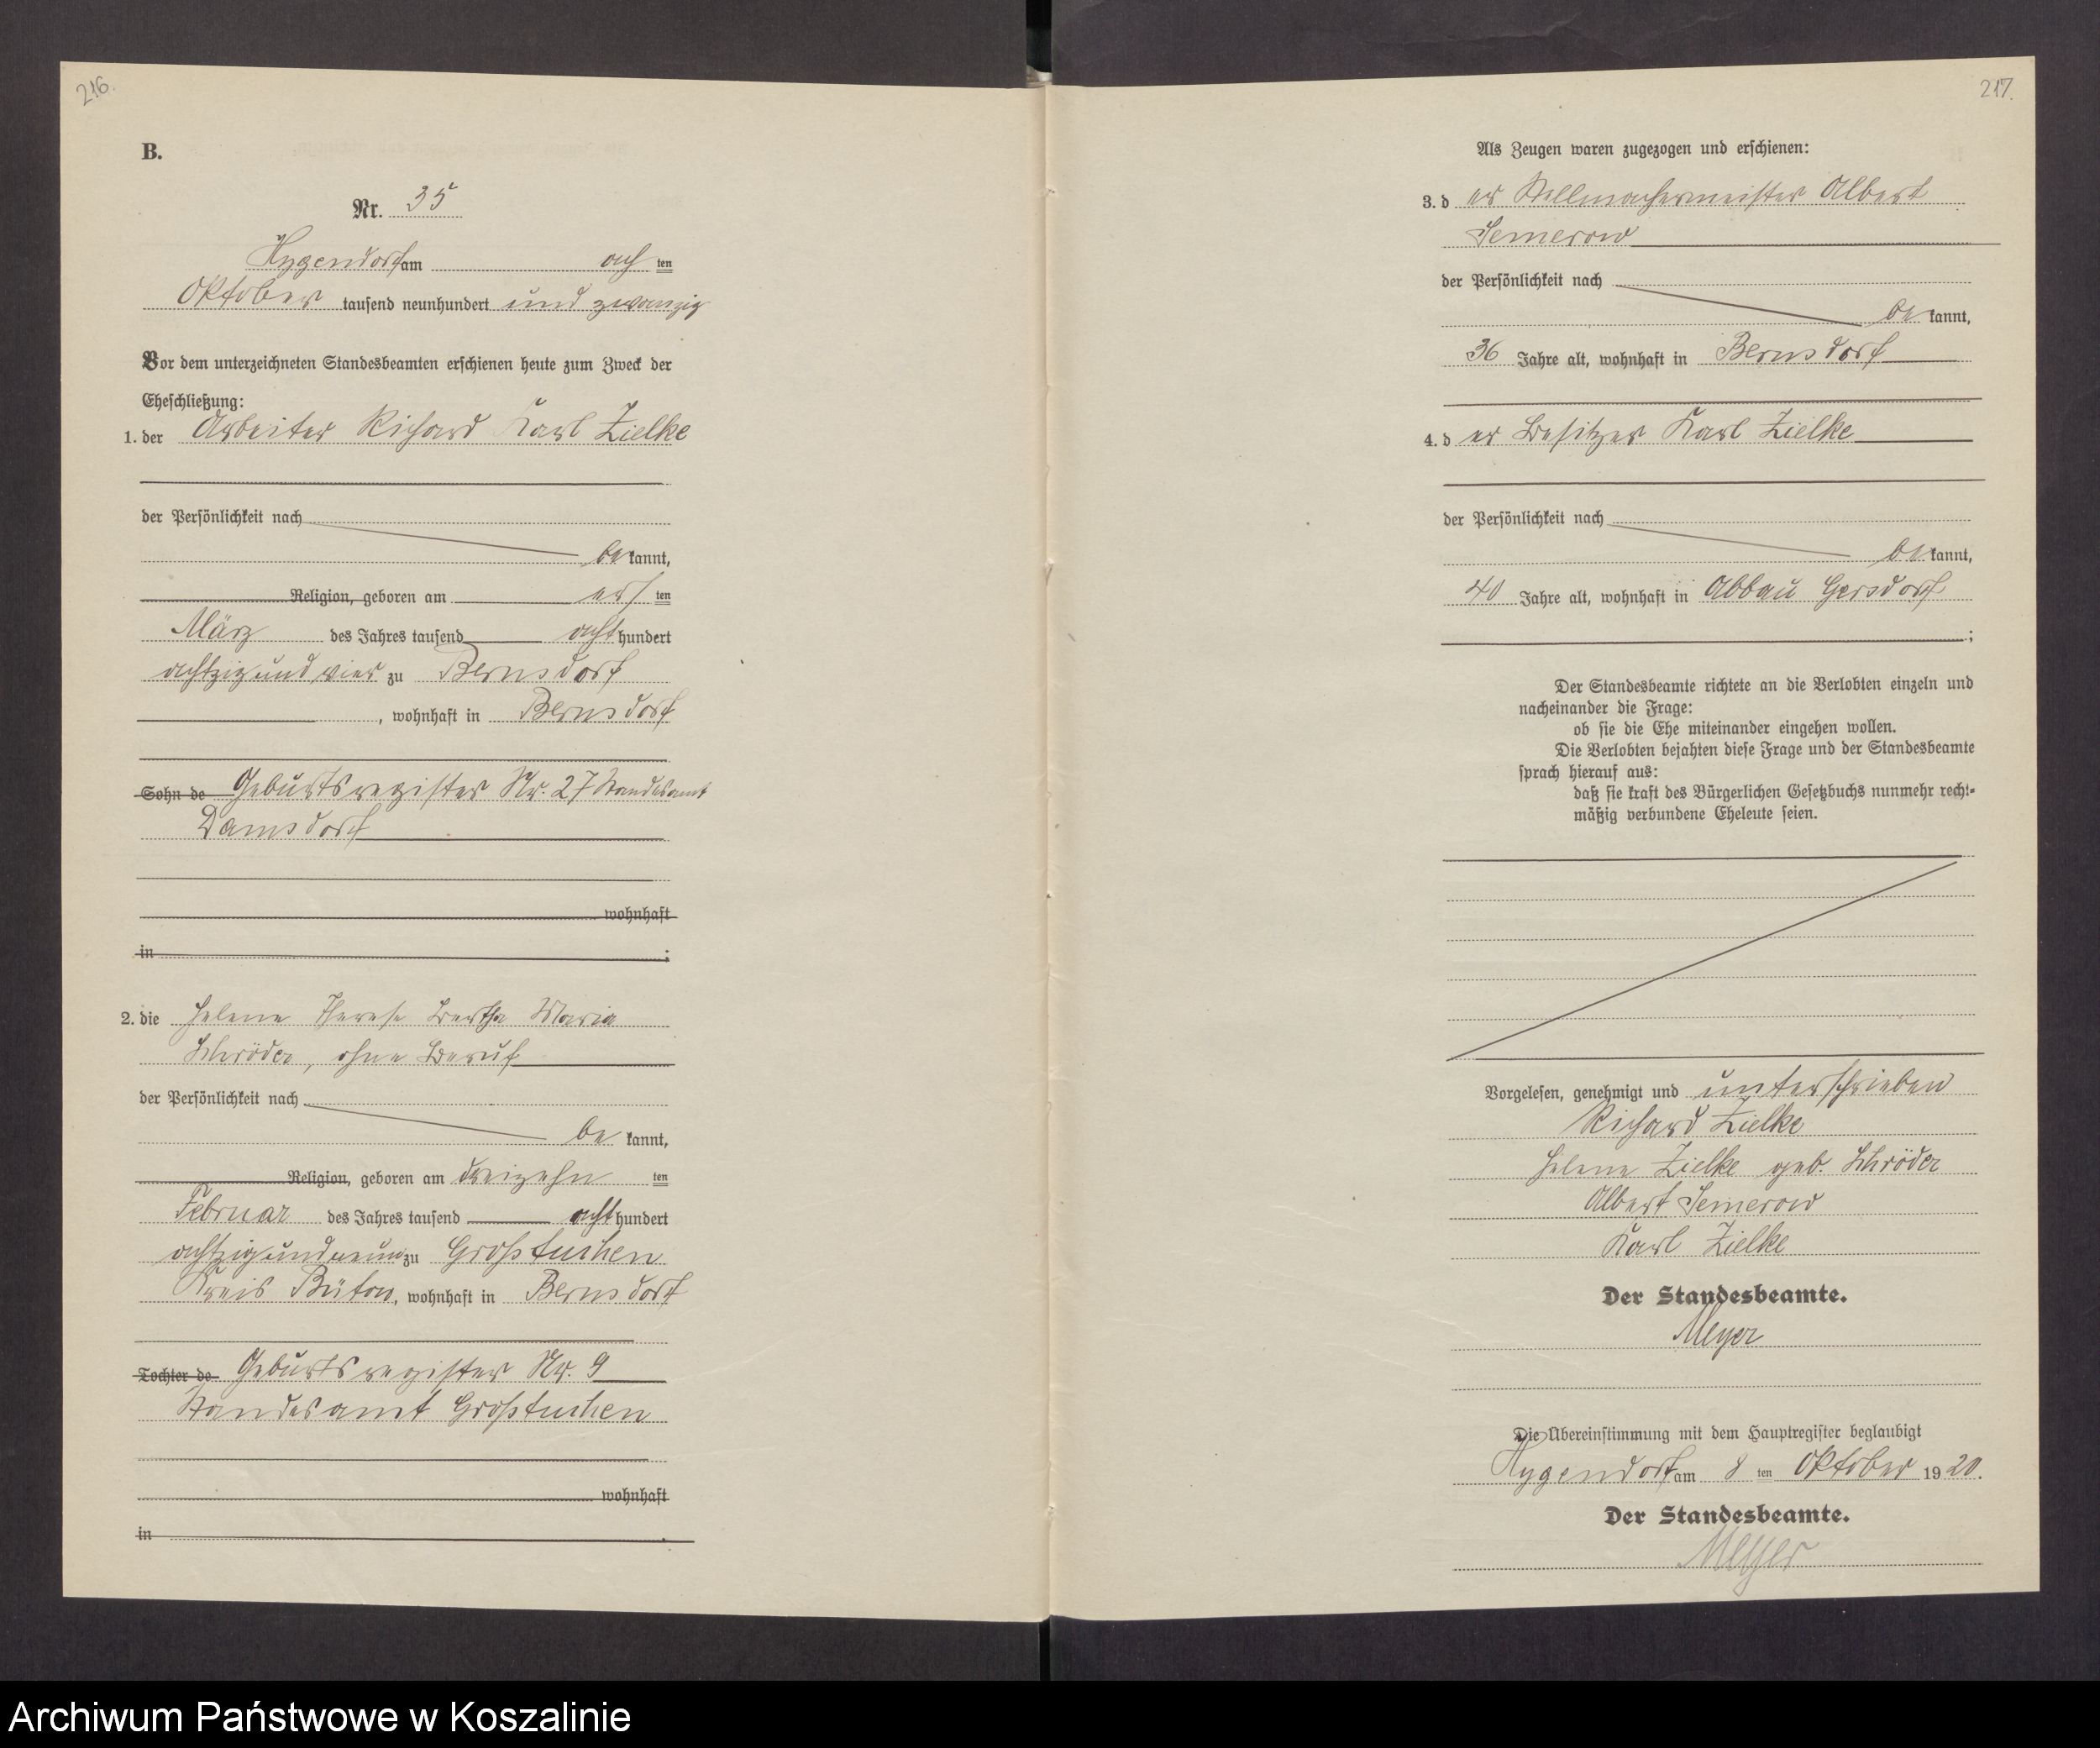 216.
B.
Nr. 35
Hygendorf am ach ten
Oktober tausend neunhundert und zwanzig
Vor dem unterzeichneten Standesbeamten erschienen heute zum Zweck der
Eheschließung:
1. der Arbeiter Richard Karl Zielke
der Persönlichkeit nach
be kannt,
Religion, geboren am ers ten
März des Jahres tausend acht hundert
achtzig und vier zu Bernsdorf
, wohnhaft in Bernsdorf
Sohn de Geburtsregister Nr. 27 Standesamt
Damsdorf
wohnhaft
in ;
2. die Helene Therese Bertha Maria
Schröder, ohne Beruf
der Persönlichkeit nach
be kannt,
Religion, geboren am dreizehn ten
Februar des Jahres tausend acht hundert
achtzig und neun zu Großtuchen
Kreis Bütow, wohnhaft in Bernsdorf
Tochter de Geburtsregister Nr. 9
Standesamt Großtuchen
wohnhaft
in .
217.
Als Zeugen waren zugezogen und erschienen:
3. d er Stellmachermeister Albert
Semerow
der Persönlichkeit nach
be kannt,
36 Jahre alt, wohnhaft in Bernsdorf
4. d er Besitzer Karl Zielke
der Persönlichkeit nach
be kannt,
40 Jahre alt, wohnhaft in Abbau Gersdorf
;
Der Standesbeamte richtete an die Verlobten einzeln und
nacheinander die Frage:
ob sie die Ehe miteinander eingehen wollen.
Die Verlobten bejahten diese Frage und der Standesbeamte
sprach hierauf aus:
daß sie kraft des Bürgerlichen Gesetzbuchs nunmehr recht-
mäßig verbundene Eheleute seien.
Vorgelesen, genehmigt und unterschrieben
Richard Zielke
Helene Zielke geb. Schröder
Albert Semerow
Karl Zielke
Der Standesbeamte.
Meyer
Die Übereinstimmung mit dem Hauptregister beglaubigt
Hygendorf am 8 ten Oktober 19 20.
Der Standesbeamte.
Meyer
Archiwum Państwowe w Koszalinie